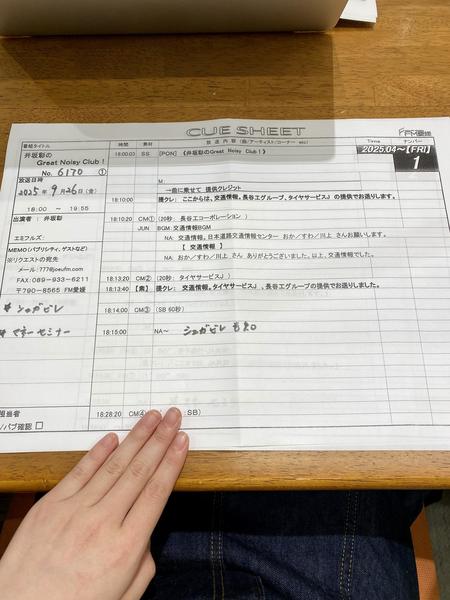 CUE SHEET
FM愛媛
番組タイトル
放送内容(曲/アーティスト/コーナー etc)
Time
ナンバー
井坂彰の
Great Noisy Club!
No. 6170 ①
時間
素材
18:00:03 SS [PON] 《井坂彰のGreat Noisy Club!》
2025.04~【FRI】
1
M:
放送日時
2025年 9月26日(金)
18:00 ~ 19:55
→曲に乗せて 提供クレジット
18:10:00 提クレ: ここからは、交通情報、長谷エグループ、タイヤサービスJ の提供でお送りします。
出演者: 井坂彰
18:10:20 CM① (20秒: 長谷エコーポレーション)
JUN BGM:交通情報BGM
エミフルズ:
NA: 交通情報。日本道路交通情報センター おか/すわ/川上 さんお願いします。
MEMO(パブリシティ、ゲストなど)
【 交通情報 】
※リクエストの宛先
NA: おか/すわ/川上 さん ありがとうございました。以上、交通情報でした。
メール:777@joeufm.com
FAX:089-933-6211
18:13:20 CM② (20秒:タイヤサービスJ)
〒790-8565 FM愛媛
18:13:40 【素】 提クレ: 交通情報。タイヤサービスJ、長谷エグループの提供でお送りしました。
18:14:00 CM③ (SB 60秒)
* シュガビレ
* マネーセミナー
18:15:00 NA~ シュガビレ告知
担当者
18:28:20 CM④
:SB)
/パブ確認 □